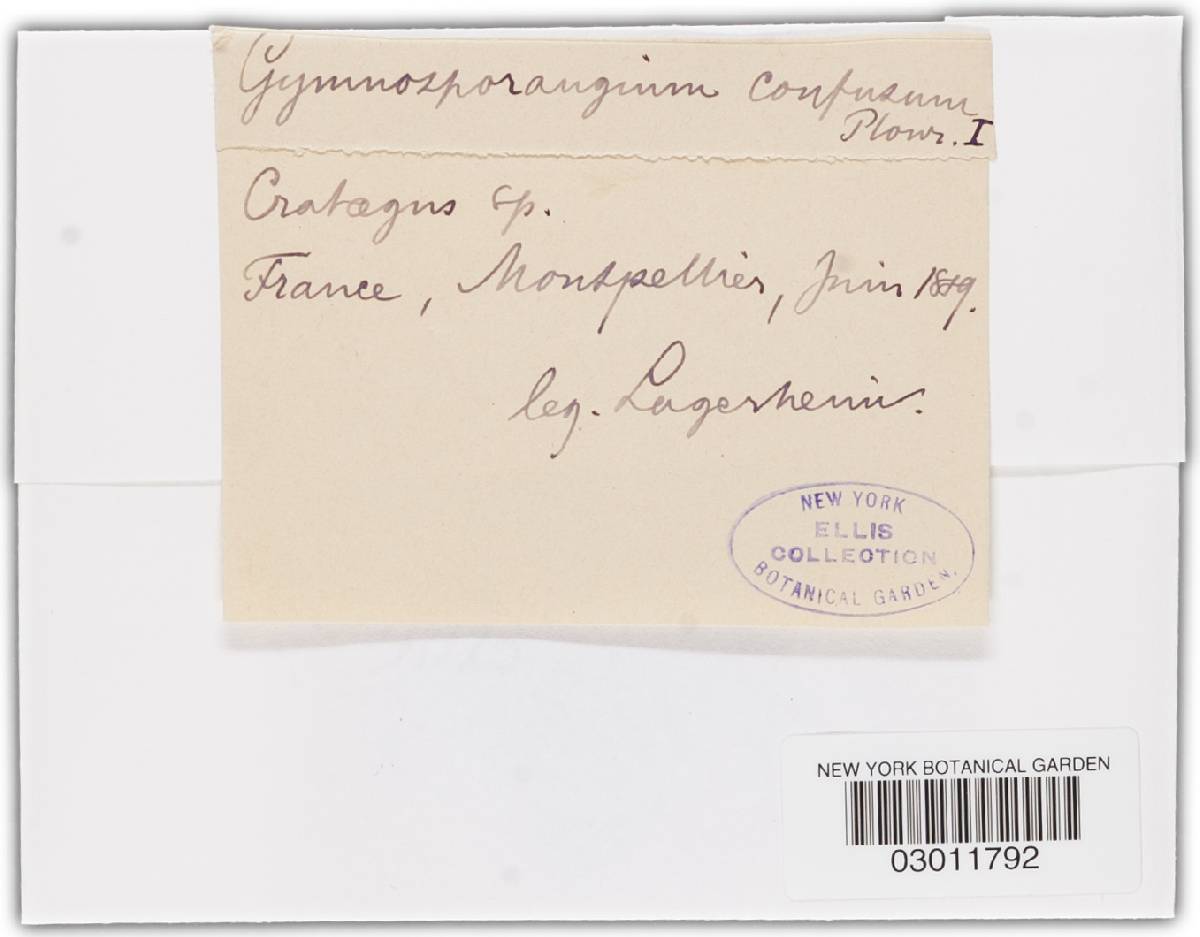 Gymnosporangium confusum
Plowr. I
Cratægus sp.
France, Montpellier, Juin 1889.
leg. Lagerheim.
NEW YORK
ELLIS
COLLECTION
BOTANICAL GARDEN.
NEW YORK BOTANICAL GARDEN
03011792